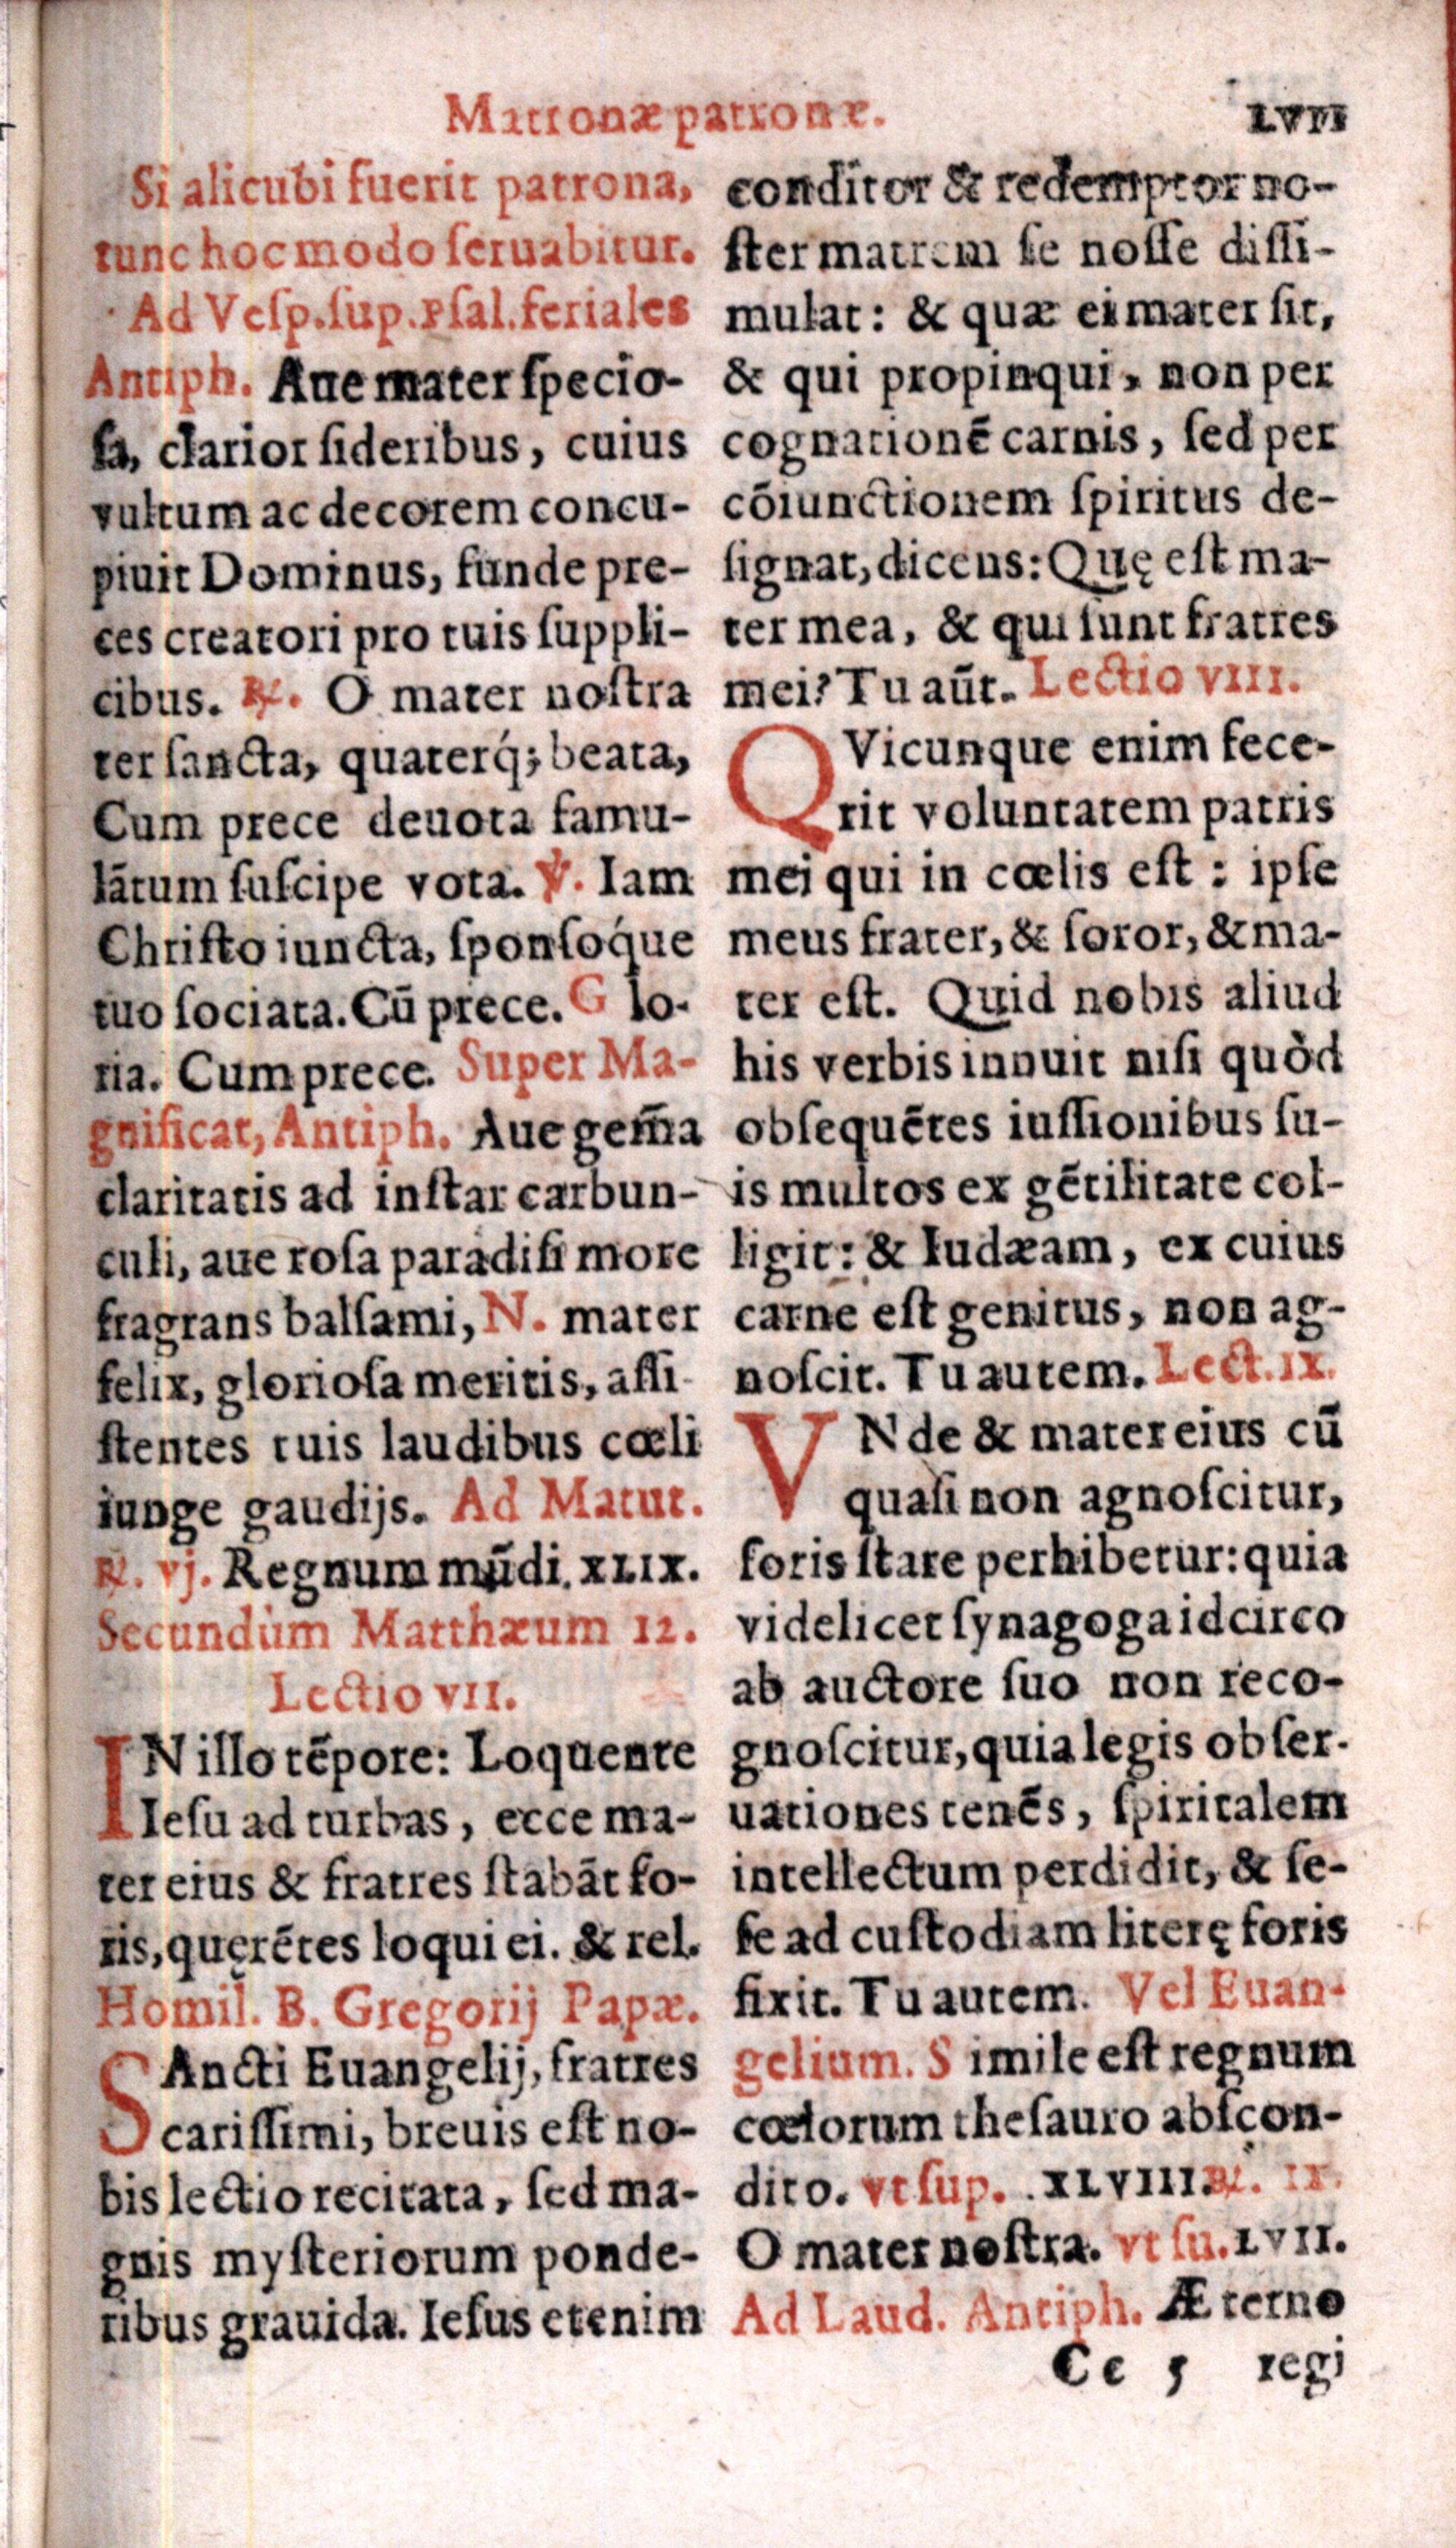 Matronæ patronæ.
LVII
Si alicubi fuerit patrona,
tunc hoc modo ſeruabitur.
Ad Veſp. ſup. pſal. feriales
Antiph. Aue mater ſpecio-
ſa, clarior ſideribus, cuius
vultum ac decorem concu-
piuit Dominus, funde pre-
ces creatori pro tuis ſuppli-
cibus. ℟. O mater noſtra
ter ſancta, quaterq́; beata,
Cum prece deuota famu-
lātum ſuſcipe vota. ℣. Iam
Chriſto iuncta, ſponſoq́ue
tuo ſociata. Cū prece. G lo-
ria. Cum prece. Super Ma-
gnificat, Antiph. Aue gem̄a
claritatis ad inſtar carbun-
culi, aue roſa paradiſi more
fragrans balſami, N. mater
felix, glorioſa meritis, aſſi-
ſtentes tuis laudibus cœli
iunge gaudijs. Ad Matut.
℟. vj. Regnum mūdi. XLIX.
Secundùm Matthæum 12.
Lectio VII.
IN illo tēpore: Loquente
Ieſu ad turbas, ecce ma-
ter eius & fratres ſtabāt fo-
ris, quęrētes loqui ei. & rel.
Homil. B. Gregorij Papæ.
SAncti Euangelij, fratres
cariſſimi, breuis eſt no-
bis lectio recitata, ſed ma-
gnis myſteriorum ponde-
ribus grauida. Ieſus etenim
conditor & redemptor no-
ſter matrem ſe noſſe diſſi-
mulat: & quæ ei mater ſit,
& qui propinqui, non per
cognationē carnis, ſed per
cōiunctionem ſpiritus de-
ſignat, dicens: Quę eſt ma-
ter mea, & qui ſunt fratres
mei? Tu aūt. Lectio VIII.
QVicunque enim fece-
rit voluntatem patris
mei qui in cœlis eſt: ipſe
meus frater, & ſoror, & ma-
ter eſt. Quid nobis aliud
his verbis innuit niſi quòd
obſequētes iuſſionibus ſu-
is multos ex gētilitate col-
ligit: & Iudæam, ex cuius
carne eſt genitus, non ag-
noſcit. Tu autem. Lect. IX.
VNde & mater eius cū
quaſi non agnoſcitur,
foris ſtare perhibetur: quia
videlicet ſynagoga idcirco
ab auctore ſuo non reco-
gnoſcitur, quia legis obſer-
uationes tenēs, ſpiritalem
intellectum perdidit, & ſe-
ſe ad cuſtodiam literę foris
fixit. Tu autem. Vel Euan-
gelium. S imile eſt regnum
cœlorum theſauro abſcon-
dito. vt ſup. XLVIII. ℟. IX.
O mater noſtra. vt ſu. LVII.
Ad Laud. Antiph. Æ terno
Cc 5 regi